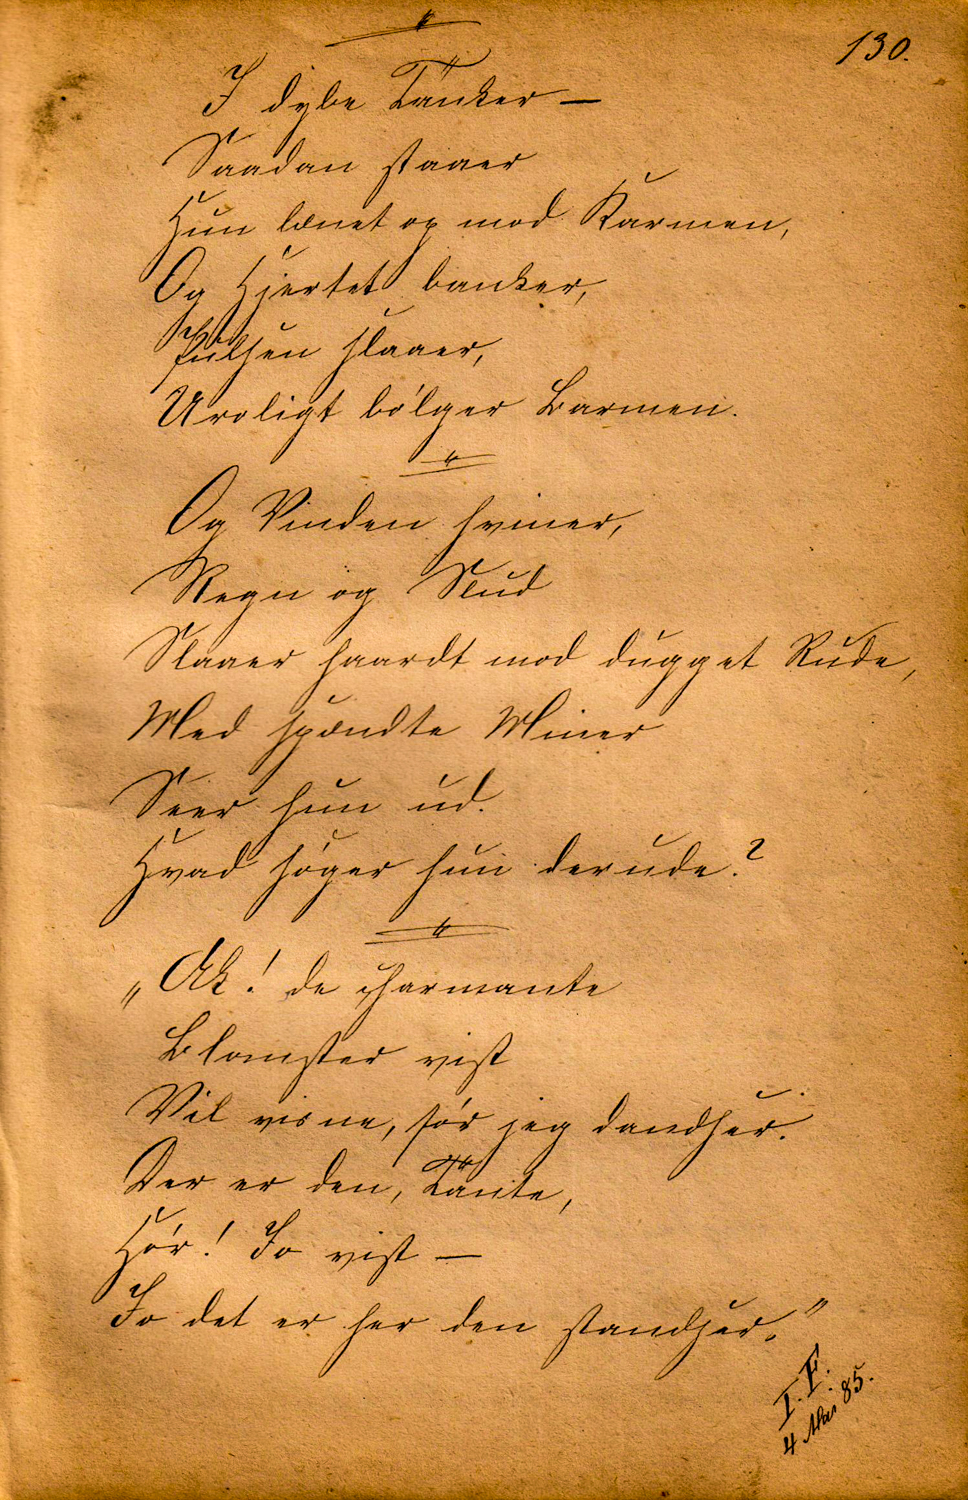 130.
I dybe Tanker —
Saadan staaer
Hun lænet op mod Karmen,
Og Hjertet banker,
Pulsen slaaer,
Uroligt bölger Barmen.
Og Vinden hviner,
Regn og Slud
Slaaer haardt mod dugget Rude,
Med spændte Miner
Seer hun ud.
Hvad söger hun derude?
„Ak! de charmante
Blomster vist
Vil visne, för jeg dandser.
Der er den, Tante,
Hör! Jo vist —
Jo det er her den standser."
I. F.
4 Mai 85.